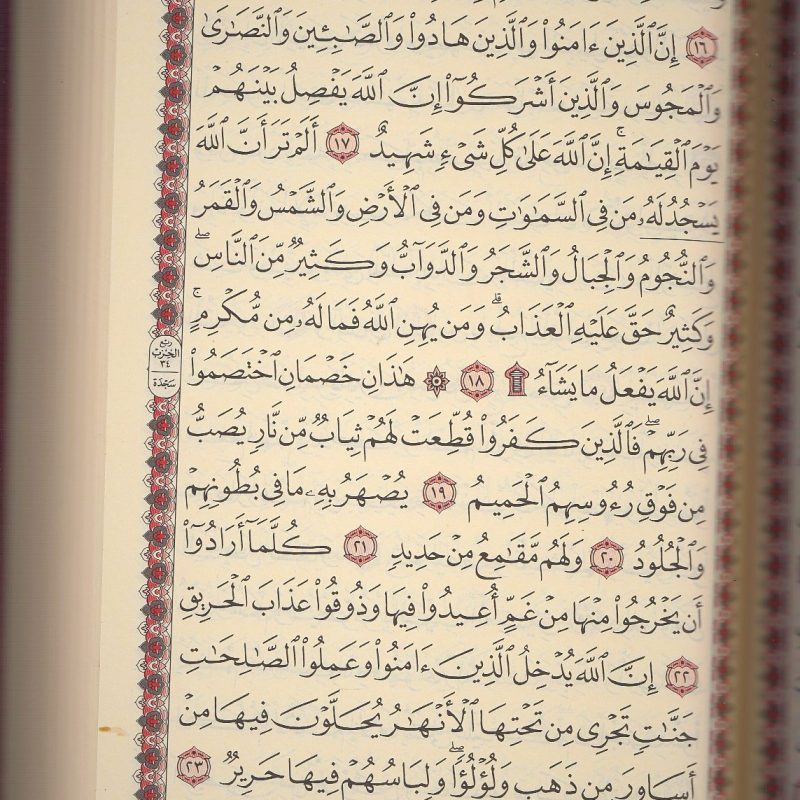 ١٦ إِنَّ ٱلَّذِينَ ءَامَنُوا۟ وَٱلَّذِينَ هَادُوا۟ وَٱلصَّٰبِـِٔينَ وَٱلنَّصَٰرَىٰ
وَٱلْمَجُوسَ وَٱلَّذِينَ أَشْرَكُوٓا۟ إِنَّ ٱللَّهَ يَفْصِلُ بَيْنَهُمْ
يَوْمَ ٱلْقِيَٰمَةِ ۚ إِنَّ ٱللَّهَ عَلَىٰ كُلِّ شَىْءٍ شَهِيدٌ ١٧ أَلَمْ تَرَ أَنَّ ٱللَّهَ
يَسْجُدُ لَهُۥ مَن فِى ٱلسَّمَٰوَٰتِ وَمَن فِى ٱلْأَرْضِ وَٱلشَّمْسُ وَٱلْقَمَرُ
وَٱلنُّجُومُ وَٱلْجِبَالُ وَٱلشَّجَرُ وَٱلدَّوَآبُّ وَكَثِيرٌ مِّنَ ٱلنَّاسِ ۖ
وَكَثِيرٌ حَقَّ عَلَيْهِ ٱلْعَذَابُ ۗ وَمَن يُهِنِ ٱللَّهُ فَمَا لَهُۥ مِن مُّكْرِمٍ ۚ
إِنَّ ٱللَّهَ يَفْعَلُ مَا يَشَآءُ ۩ ١٨ ۞ هَٰذَانِ خَصْمَانِ ٱخْتَصَمُوا۟
فِى رَبِّهِمْ ۖ فَٱلَّذِينَ كَفَرُوا۟ قُطِّعَتْ لَهُمْ ثِيَابٌ مِّن نَّارٍ يُصَبُّ
مِن فَوْقِ رُءُوسِهِمُ ٱلْحَمِيمُ ١٩ يُصْهَرُ بِهِۦ مَا فِى بُطُونِهِمْ
وَٱلْجُلُودُ ٢٠ وَلَهُم مَّقَٰمِعُ مِنْ حَدِيدٍ ٢١ كُلَّمَآ أَرَادُوٓا۟
أَن يَخْرُجُوا۟ مِنْهَا مِنْ غَمٍّ أُعِيدُوا۟ فِيهَا وَذُوقُوا۟ عَذَابَ ٱلْحَرِيقِ
٢٢ إِنَّ ٱللَّهَ يُدْخِلُ ٱلَّذِينَ ءَامَنُوا۟ وَعَمِلُوا۟ ٱلصَّٰلِحَٰتِ
جَنَّٰتٍ تَجْرِى مِن تَحْتِهَا ٱلْأَنْهَٰرُ يُحَلَّوْنَ فِيهَا مِنْ
أَسَاوِرَ مِن ذَهَبٍ وَلُؤْلُؤًا ۖ وَلِبَاسُهُمْ فِيهَا حَرِيرٌ ٢٣
ربع
الحزب
٣٤
سجدة